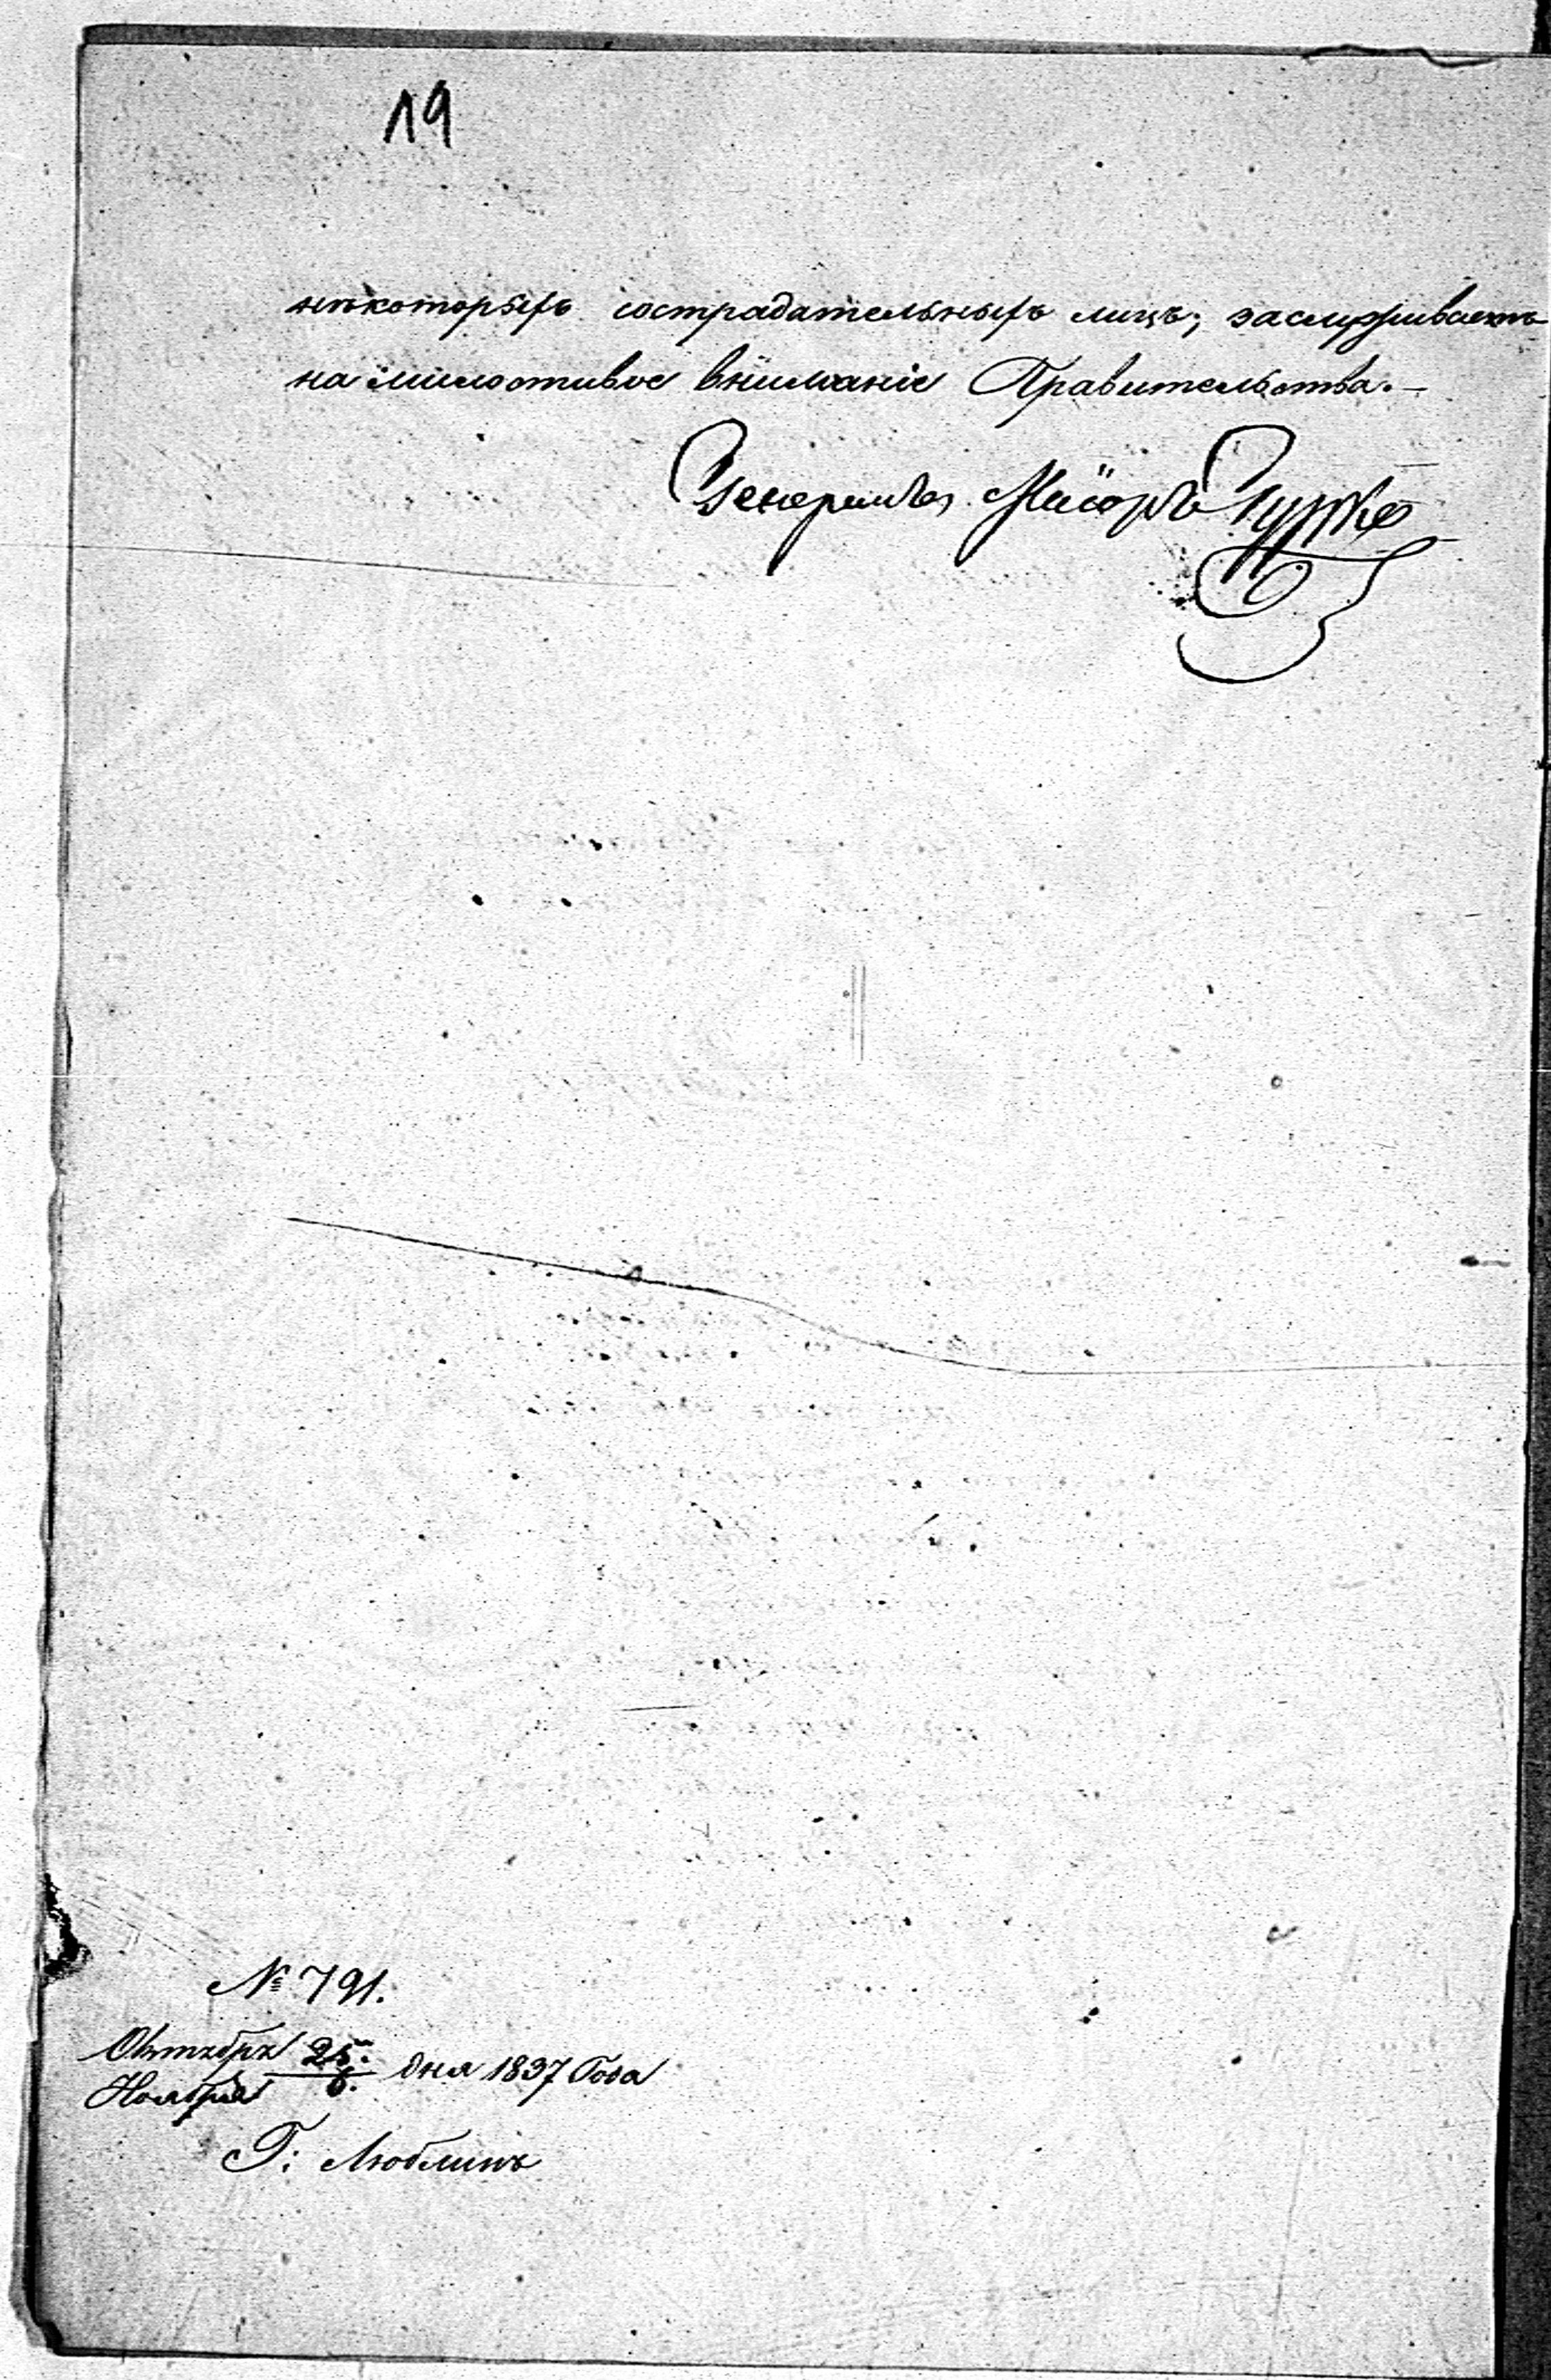 19
нѣкоторыхъ сострадательныхъ лицъ; заслуживаетъ
на милостивое вниманіе Правительства.—
Генералъ Маіоръ Гурко
№ 791.
Октября 25. дня 1837 Года
Ноября 6.
Г: Люблинъ